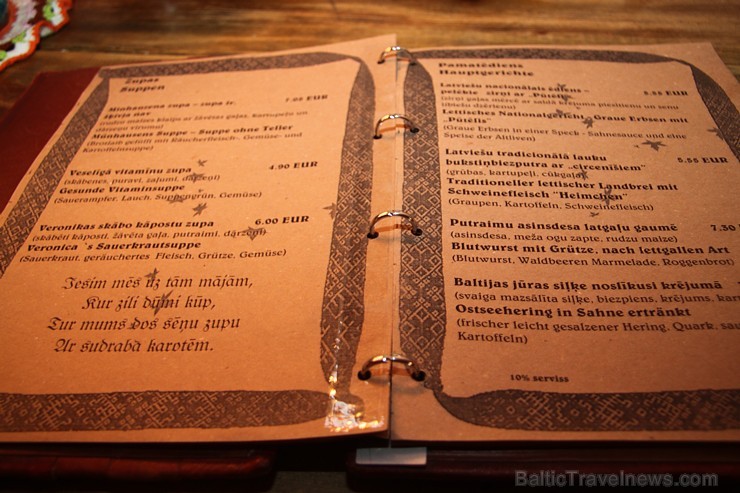 Zupas
Suppen
Minhauzena zupa – zupa šr. 7.05 EUR
Münhauzens Suppe – Suppe ohne Teller
(Brotlaib gefüllt mit Räucherfleisch- Gemüse- und
Kartoffelnsuppe)
Veselīgā vitamīnu zupa 4.90 EUR
(skābenes, puravi, zaļumi, dārzeņi)
Gesunde Vitaminsuppe
(Sauerampfer, Lauch, Suppengrün, Gemüse)
Veronikas skābo kāpostu zupa 6.00 EUR
(skābēti kāposti, žāvēta gaļa, putraimi, dārzeņi)
Veronica `s Sauerkrautsuppe
(Sauerkraut, geräuchertes Fleisch, Grütze, Gemüse)
Iesim mēs uz tām mājām,
Kur zili dūmi kūp,
Tur mums dos sēņu zupu
Ar sudraba karotēm.
Pamatēdiens
Hauptgerichte
Latviešu nacionālais ēdiens –
pelēkie zirņi ar "Pūteli"
Lettisches Nationalgericht - Graue Erbsen mit
"Putelis"
(Graue Erbsen in einer Speck - Sahnesauce und eine
Speise der Altliven)
Latviešu tradicionālā lauku
bukstiņbiezputra a „circenīšiem" 5.55 EUR
(grūbas, kartupeļi, cūkgaļa)
Traditioneller lettischer Landbrei mit
Schweinefleisch "Heimchen"
(Graupen, Kartoffeln, Schweinefleisch)
Putraimu asinsdesa latgaļu gaumē 7.30
(asinsdesa, meža ogu zapte, rudzu maize)
Blutwurst mit Grütze, nach lettgallen Art
(Blutwurst, Waldbeeren Marmelade, Roggenbrot)
Baltijas jūras siļķe noslīkusi krējumā
(svaiga mazsālīta siļķe, biezpiens, krējums,
Ostseehering in Sahne ertränkt
(frischer leicht gesalzener Hering, Quark,
Kartoffeln)
10% serviss
BalticTravelnews.com